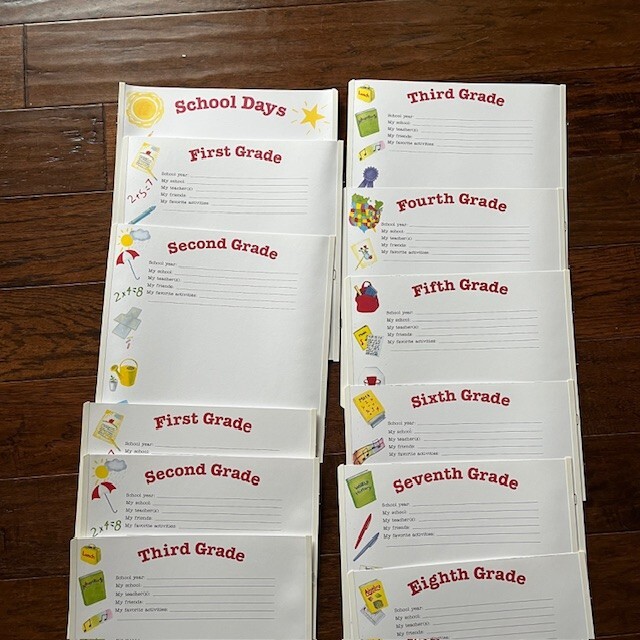 School Days
First Grade
School year:
My school:
My teacher(s):
My friends:
My favorite activities:
2+5=7
Second Grade
School year:
My school:
My teacher(s):
My friends:
My favorite activities:
2x4=8
First Grade
School year:
My school:
Second Grade
School year:
My school:
My teacher(s):
My friends:
My favorite activities:
2x4=8
Third Grade
Lunch
School year:
My school:
My teacher(s):
My friends:
My favorite activities:
Third Grade
Lunch
School year:
My school:
My teacher(s):
My friends:
My favorite activities:
Fourth Grade
School year:
My school:
My teacher(s):
My friends:
My favorite activities:
Fifth Grade
School year:
My school:
My teacher(s):
My friends:
My favorite activities:
Sixth Grade
Math
School year:
My school:
My teacher(s):
My friends:
My favorite activities:
Seventh Grade
World
History
School year:
My school:
My teacher(s):
My friends:
My favorite activities:
Eighth Grade
Algebra
School year:
My school:
My teacher(s):
My friends:
My favorite activities: